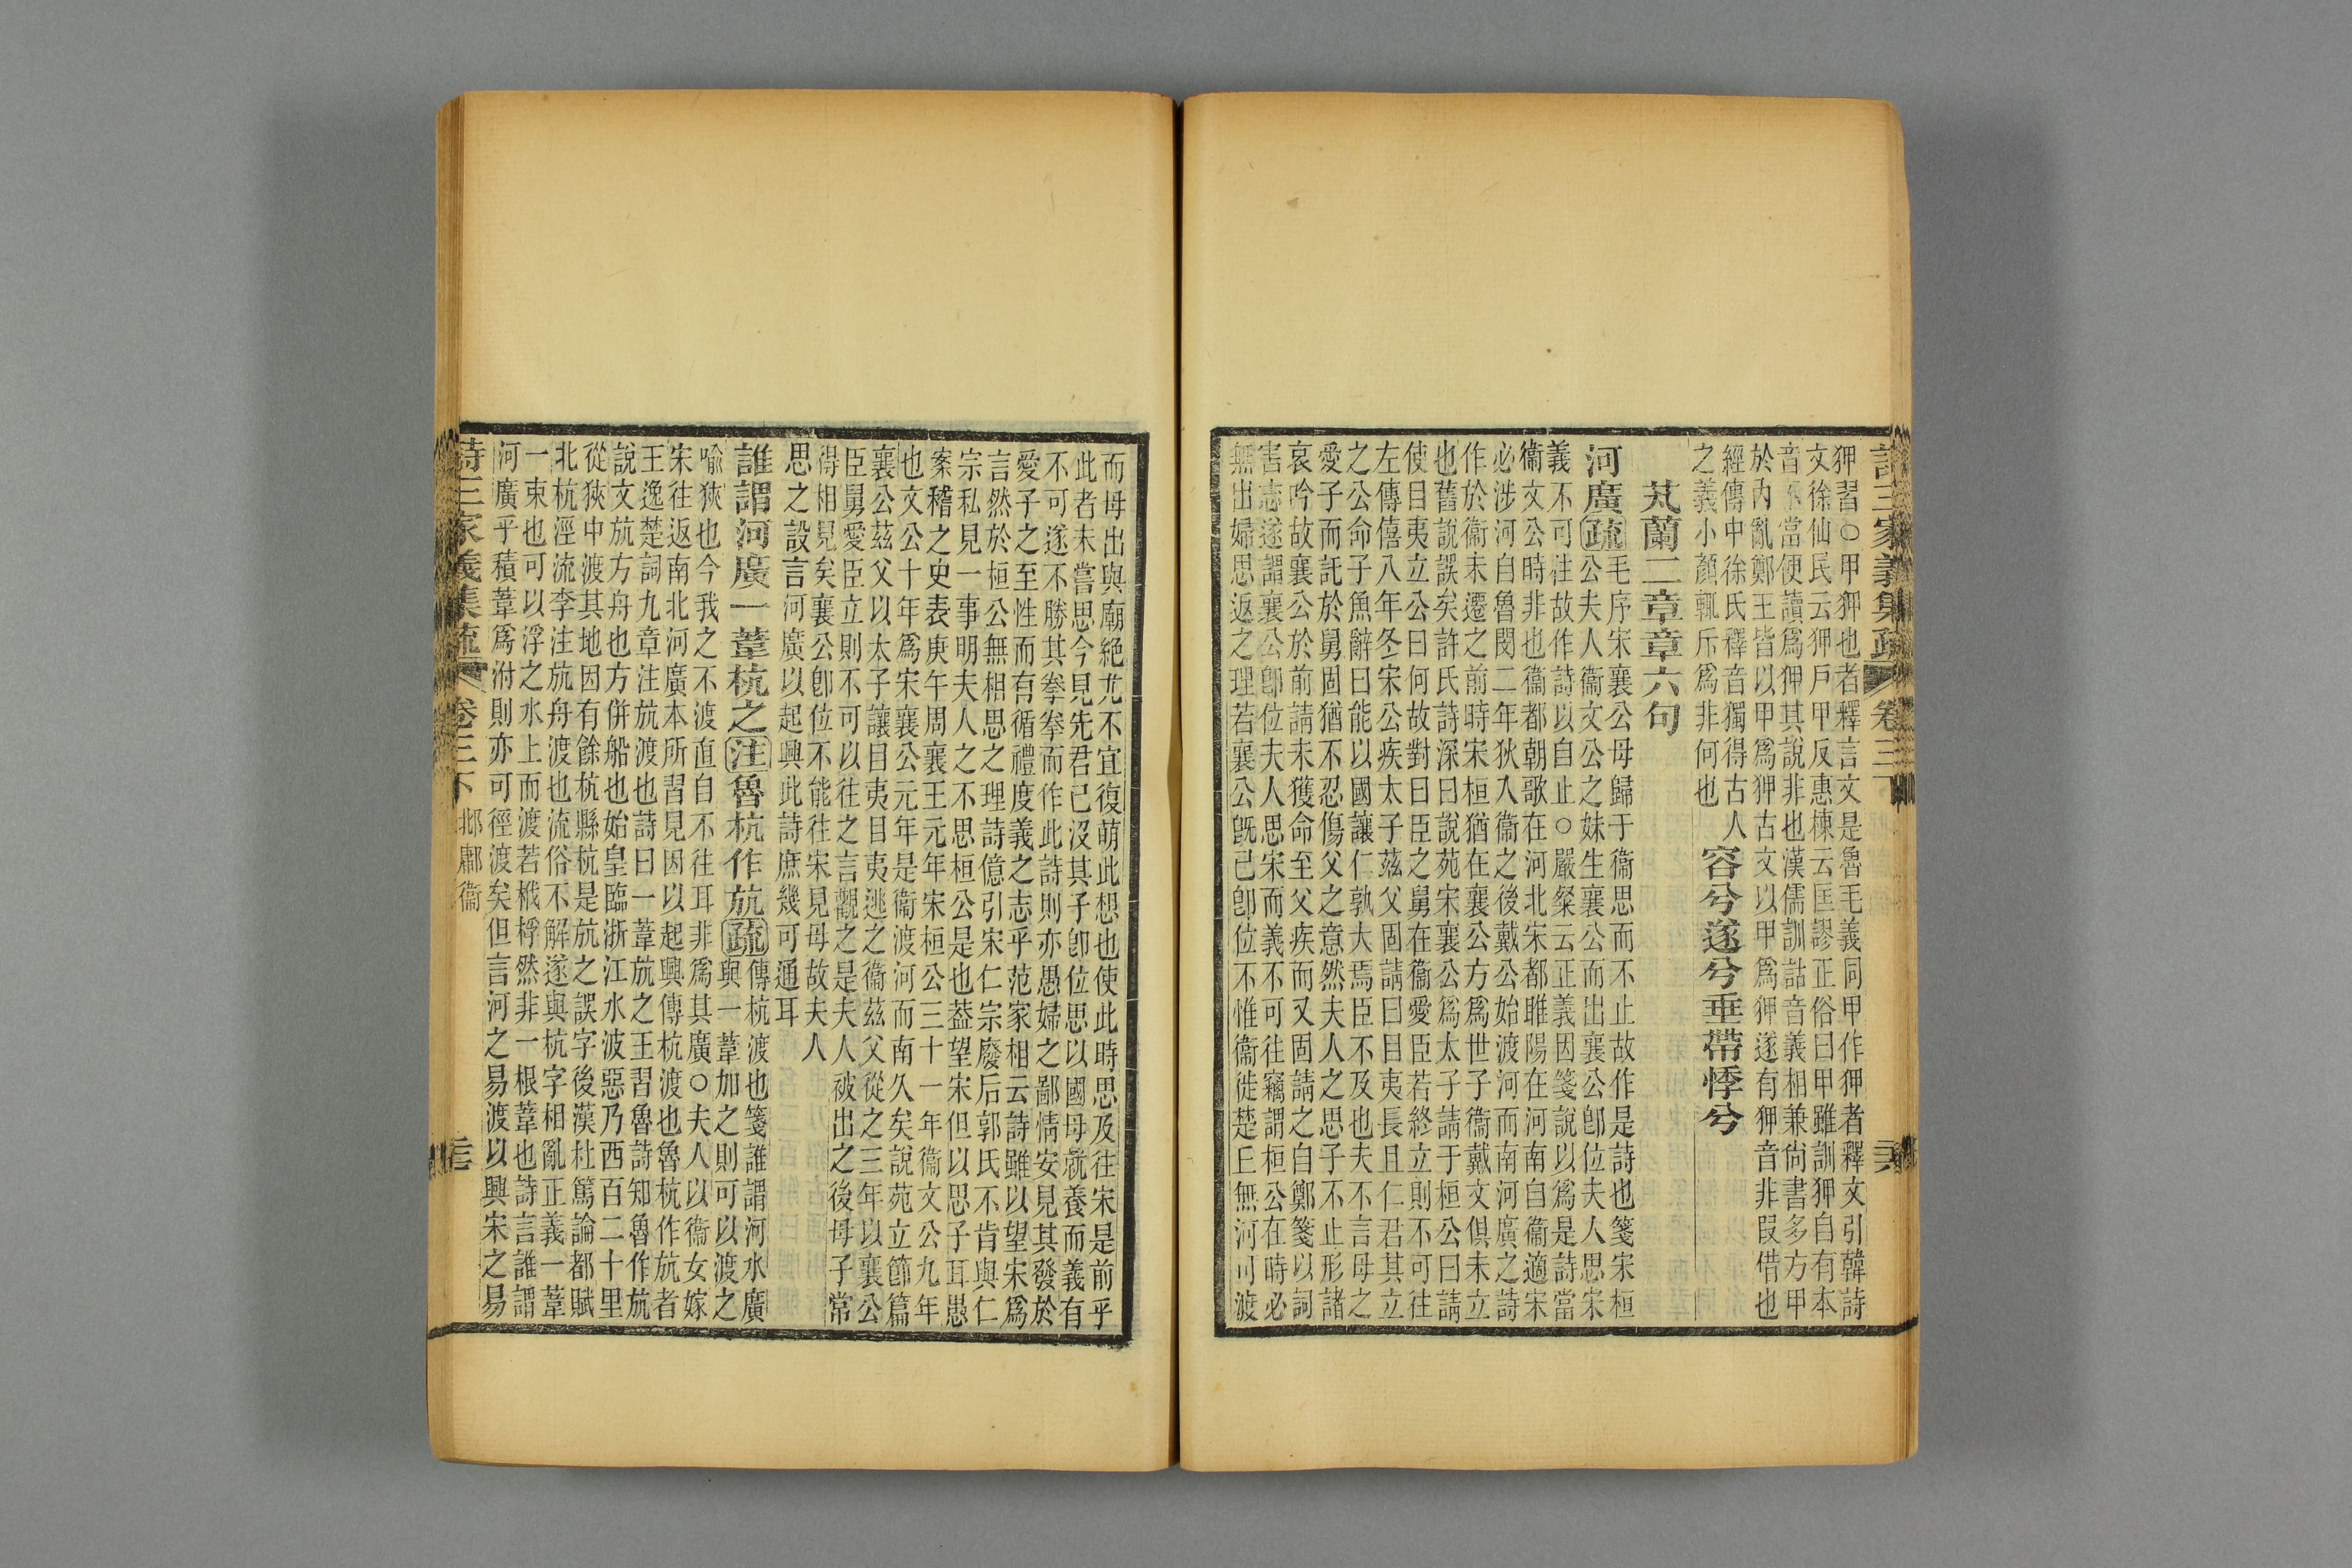 詩三家義集疏 卷三下 三六
狎習○甲狎也者釋言文是魯毛義同甲作狎者釋文引韓詩
文徐仙民云狎戶甲反惠棟云匡謬正俗曰甲雖訓狎自有本
音不當便讀爲狎其說非也漢儒訓詁音義相兼尙書多方甲
於內亂鄭王皆以甲爲狎古文以甲爲狎遂有狎音非叚借也
經傳中徐氏釋音獨得古人
之義小顏輒斥爲非何也
容兮遂兮垂帶悸兮
芄蘭二章章六句
河廣疏
毛序宋襄公母歸于衞思而不止故作是詩也箋宋桓
公夫人衞文公之妹生襄公而出襄公卽位夫人思宋
義不可往故作詩以自止○嚴粲云正義因箋說以爲是詩當
衞文公時非也衞都朝歌在河北宋都睢陽在河南自衞適宋
必涉河自魯閔二年狄入衞之後戴公始渡河而南河廣之詩
作於衞未遷之前時宋桓猶在襄公方爲世子衞戴文俱未立
也舊說誤矣許氏詩深曰說苑宋襄公爲太子請于桓公曰請
使目夷立公曰何故對曰臣之舅在衞愛臣若終立則不可往
左傳僖八年冬宋公疾太子茲父固請曰目夷長且仁君其立
之公命子魚辭曰能以國讓仁孰大焉臣不及也夫不言母之
愛子而託於舅固猶不忍傷父之意然夫人之思子不止形諸
哀吟故襄公於前請未獲命至父疾而又固請之自鄭箋以詞
害志遂謂襄公卽位夫人思宋而義不可往竊謂桓公在時必
無出婦思返之理若襄公旣已卽位不惟衞徙楚丘無河可渡
而母出與廟絕尤不宜復萌此想也使此時思及往宋是前乎
此者未嘗思今見先君已沒其子卽位思以國母就養而義有
不可遂不勝其拳拳而作此詩則亦愚婦之鄙情安見其發於
愛子之至性而有循禮度義之志乎范家相云詩雖以望宋爲
言然於桓公無相思之理詩億引宋仁宗廢后郭氏不肯與仁
宗私見一事明夫人之不思桓公是也葢望宋但以思子耳愚
案稽之史表庚午周襄王元年宋桓公三十一年衞文公九年
也文公十年爲宋襄公元年是衞渡河而南久矣說苑立節篇
襄公茲父以太子讓目夷目夷逃之衞茲父從之三年以襄公
臣舅愛臣立則不可以往之言觀之是夫人被出之後母子常
得相見矣襄公卽位不能往宋見母故夫人
思之設言河廣以起興此詩庶幾可通耳
誰謂河廣一葦杭之注魯杭作斻疏
傳杭渡也箋誰謂河水廣
與一葦加之則可以渡之
喻狹也今我之不渡直自不往耳非爲其廣○夫人以衞女嫁
宋往返南北河廣本所習見因以起興傳杭渡也魯杭作斻者
王逸楚詞九章注斻渡也詩曰一葦斻之王習魯詩知魯作斻
說文斻方舟也方併船也始皇臨浙江水波惡乃西百二十里
從狹中渡其地因有餘杭縣杭是斻之誤字後漢杜篤論都賦
北杭涇流李注斻舟渡也流俗不解遂與杭字相亂正義一葦
一束也可以浮之水上而渡若栰桴然非一根葦也詩言誰謂
河廣乎積葦爲泭則亦可徑渡矣但言河之易渡以興宋之易
詩三家義集疏 卷三下 邶鄘衞 三七